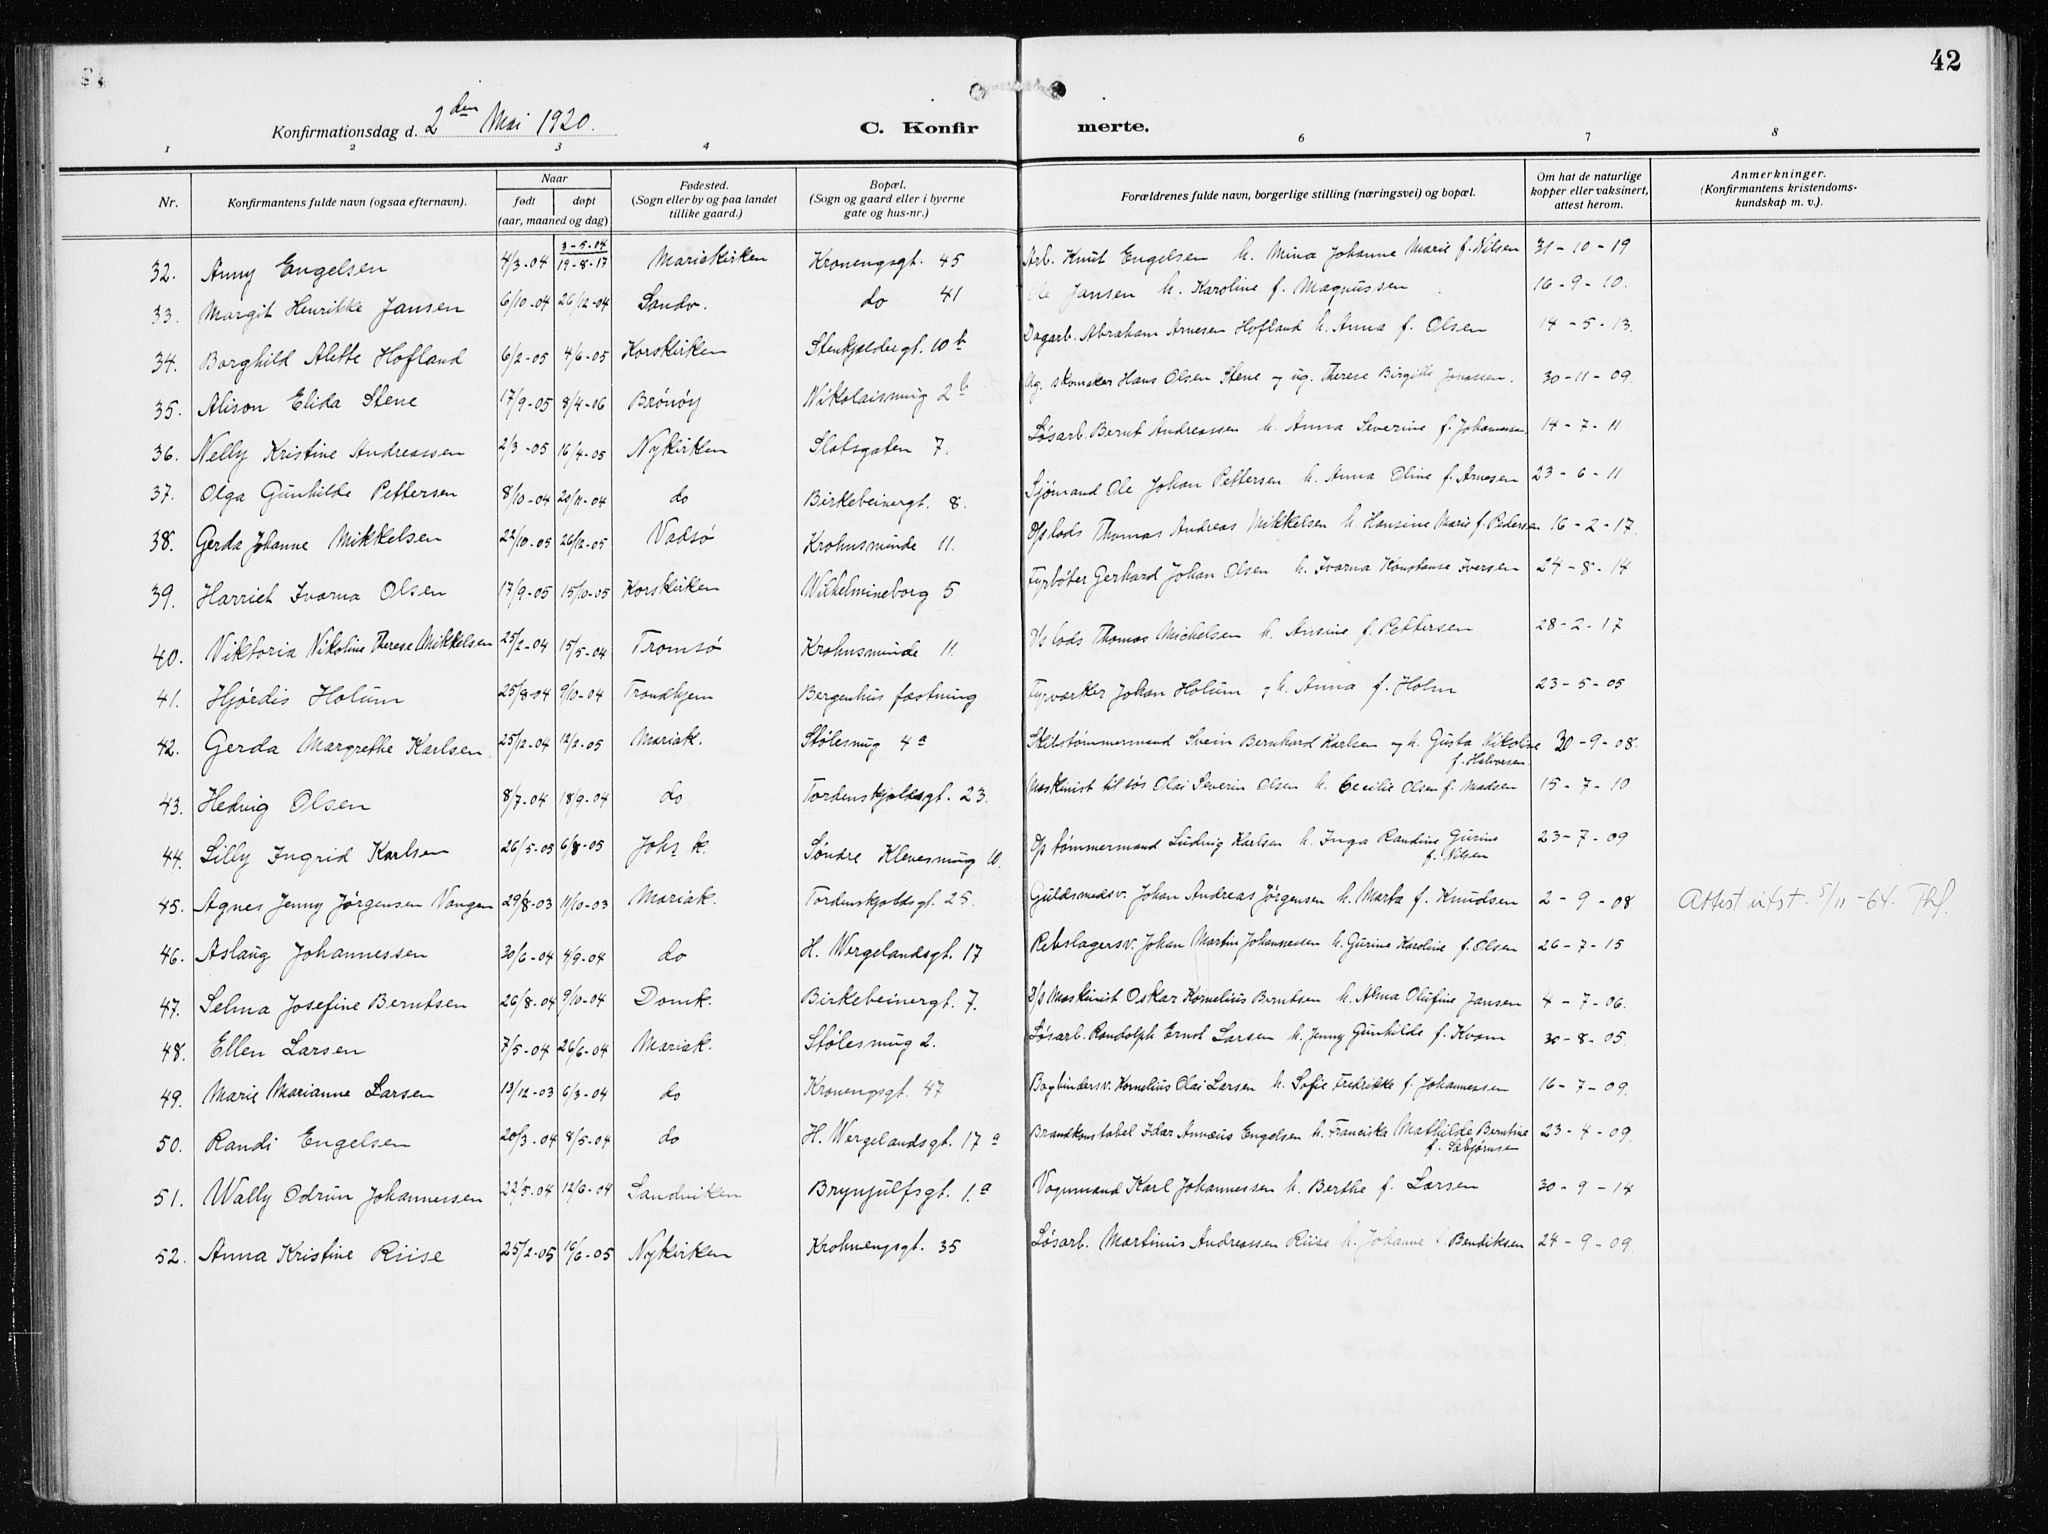 42
Konfirmationsdag d. 2den Mai 1920. C. Konfirmerte.
1 2 3 4 6 7 8
Nr. Konfirmantens fulde navn (ogsaa efternavn). Naar født døpt (aar, maaned og dag) Fødested. (Sogn eller by og paa landet tillike gaard.) Bopæl. (Sogn og gaard eller i byerne gate og hus-nr.) Forældrenes fulde navn, borgerlige stilling (næringsvei) og bopæl. Om hat de naturlige kopper eller vaksinert, attest herom. Anmerkninger. (Konfirmantens kristendoms-kundskap m. v.).
32. Anny Engelsen 4/3-04 3-5-04 19-8-17 Mariakirken Kronengsgt. 45 Arb. Knut Engelsen h. Mina Johanne Marie f. Nilsen 31-10-19
33. Margit Henrikke Jansen 6/10-04 26/12-04 Sandv. do 41 Ole Jansen h. Karoline f. Magnussen 16-9-10.
34. Borghild Alette Hofland 6/2-05 4/6-05 Korskirken Stenkjeldergt. 10 b Dagarb. Abraham Arnesen Hofland h. Anna f. Olsen 14-5-13.
35. Alison Elida Stene 17/9-05 8/4-06 Brönöy Nikolaismug 2 b Ug. skomaker Hans Olsen Stene og ug. Therese Birgitte Jonassen. 30-11-09.
36. Nelly Kristine Andreassen 2/3-05 16/4-05 Nykirken Slotsgaten 7. Løsarb. Bernt Andreassen h. Anna Severine f. Johannessen 14-7-11
37. Olga Gunhilde Pettersen 8/10-04 20/11-04 do Birkebeinergt. 8. Sjømand Ole Johan Pettersen h. Anna Oline f. Arnesen 23-6-11
38. Gerda Johanne Mikkelsen 22/10-05 26/12-05 Vadsö Krohnsminde 11. D/s lods Thomas Andreas Mikkelsen h. Hansine Marie f. Pedersen 16-2-17.
39. Harriet Ivarna Olsen 17/9-05 15/10-05 Korskirken Wilhelmineborg 5 Fyrbøter Gerhard Johan Olsen h. Ivarna Konstanse Iversen 24-8-14
40. Viktoria Nikoline Therese Mikkelsen 25/2-04 15/5-04 Tromsö Krohnsminde 11. D/s lods Thomas Michelsen h. Ansine f. Pettersen 28-2-17
41. Hjørdis Holum 25/8-04 9/10-04 Trondhjem Bergenhus fæstning Fyrværker Johan Holum og h. Anna f. Holm 23-5-05
42. Gerda Margrethe Karlsen 25/12-04 12/2-05 Mariak. Stølesmug 4 a Skibstømmermand Svein Bernhard Karlsen og h. Gusta Nikoline f. Halvorsen 30-9-08.
43. Hedvig Olsen 8/7-04 18/9-04 do Tordenskjoldsgt. 23. Maskinist til søs Olai Severin Olsen h. Cecilie Olsen f. Madsen 15-7-10
44. Lilly Ingrid Karlsen 26/5-05 6/8-05 Johs k. Søndre Klevesmug 10. D/s tømmermand Ludvig Karlsen h. Inga Randine Gurine f. Nilsen 23-7-09
45. Agnes Jenny Jørgensen Vangen 29/8-03 11/10-03 Mariak. Tordenskjoldsgt. 25. Guldsmedsv. Johan Andreas Jørgensen h. Marta f. Knudsen 2-9-08 Attest utst. 5/11-64.
46. Aslaug Johannessen 30/6-04 4/9-04 do H. Wergelandsgt. 17 Rebslagersv. Johan Martin Johannessen h. Gurine Karoline f. Olsen 26-7-15
47. Selma Josefine Berntsen 26/8-04 9/10-04 Domk. Birkebeinergt. 7. D/s Maskinist Oskar Kornelius Berntsen h. Alma Olufine Jansen 4-7-06.
48. Ellen Larsen 7/5-04 26/6-04 Mariak. Stølesmug 2. Løsarb. Randolph Ernst Larsen h. Jenny Gunhilde f. Kvam 30-8-05.
49. Marie Marianne Larsen 13/12-03 6/3-04 do Kronengsgt. 47 Bogbindersv. Kornelius Olai Larsen h. Sofie Fredrikke f. Johannessen 16-7-09.
50. Randi Engelsen 20/3-04 8/5-04 do H. Wergelandsgt. 17 a Brandkonstabel Idar Annæus Engelsen h. Franciska Mathilde Berntine f. Sæbjørnsen 23-4-09.
51. Wally Odrun Johannessen 22/5-04 12/6-04 Sandviken Brynjulfsgt. 1. a Vognmand Karl Johannessen h. Berthe f. Larsen 30-9-14
52. Anna Kristine Riise 25/2-05 19/6-05 Nykirken Krohnengsgt. 35 Løsarb. Martinus Andreassen Riise h. Johanne f. Bendiksen 24-9-09.